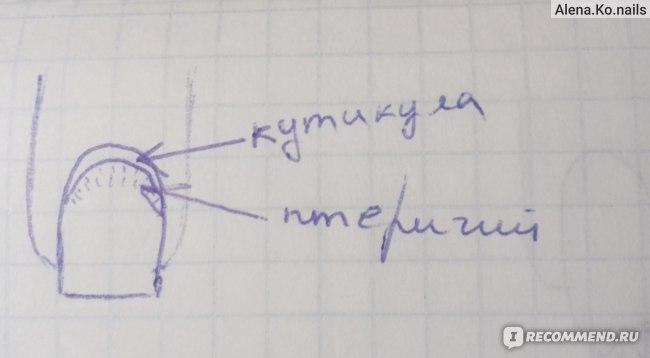 Alena.Ko.nails
кутикула
птеригий
IRECOMMEND.RU